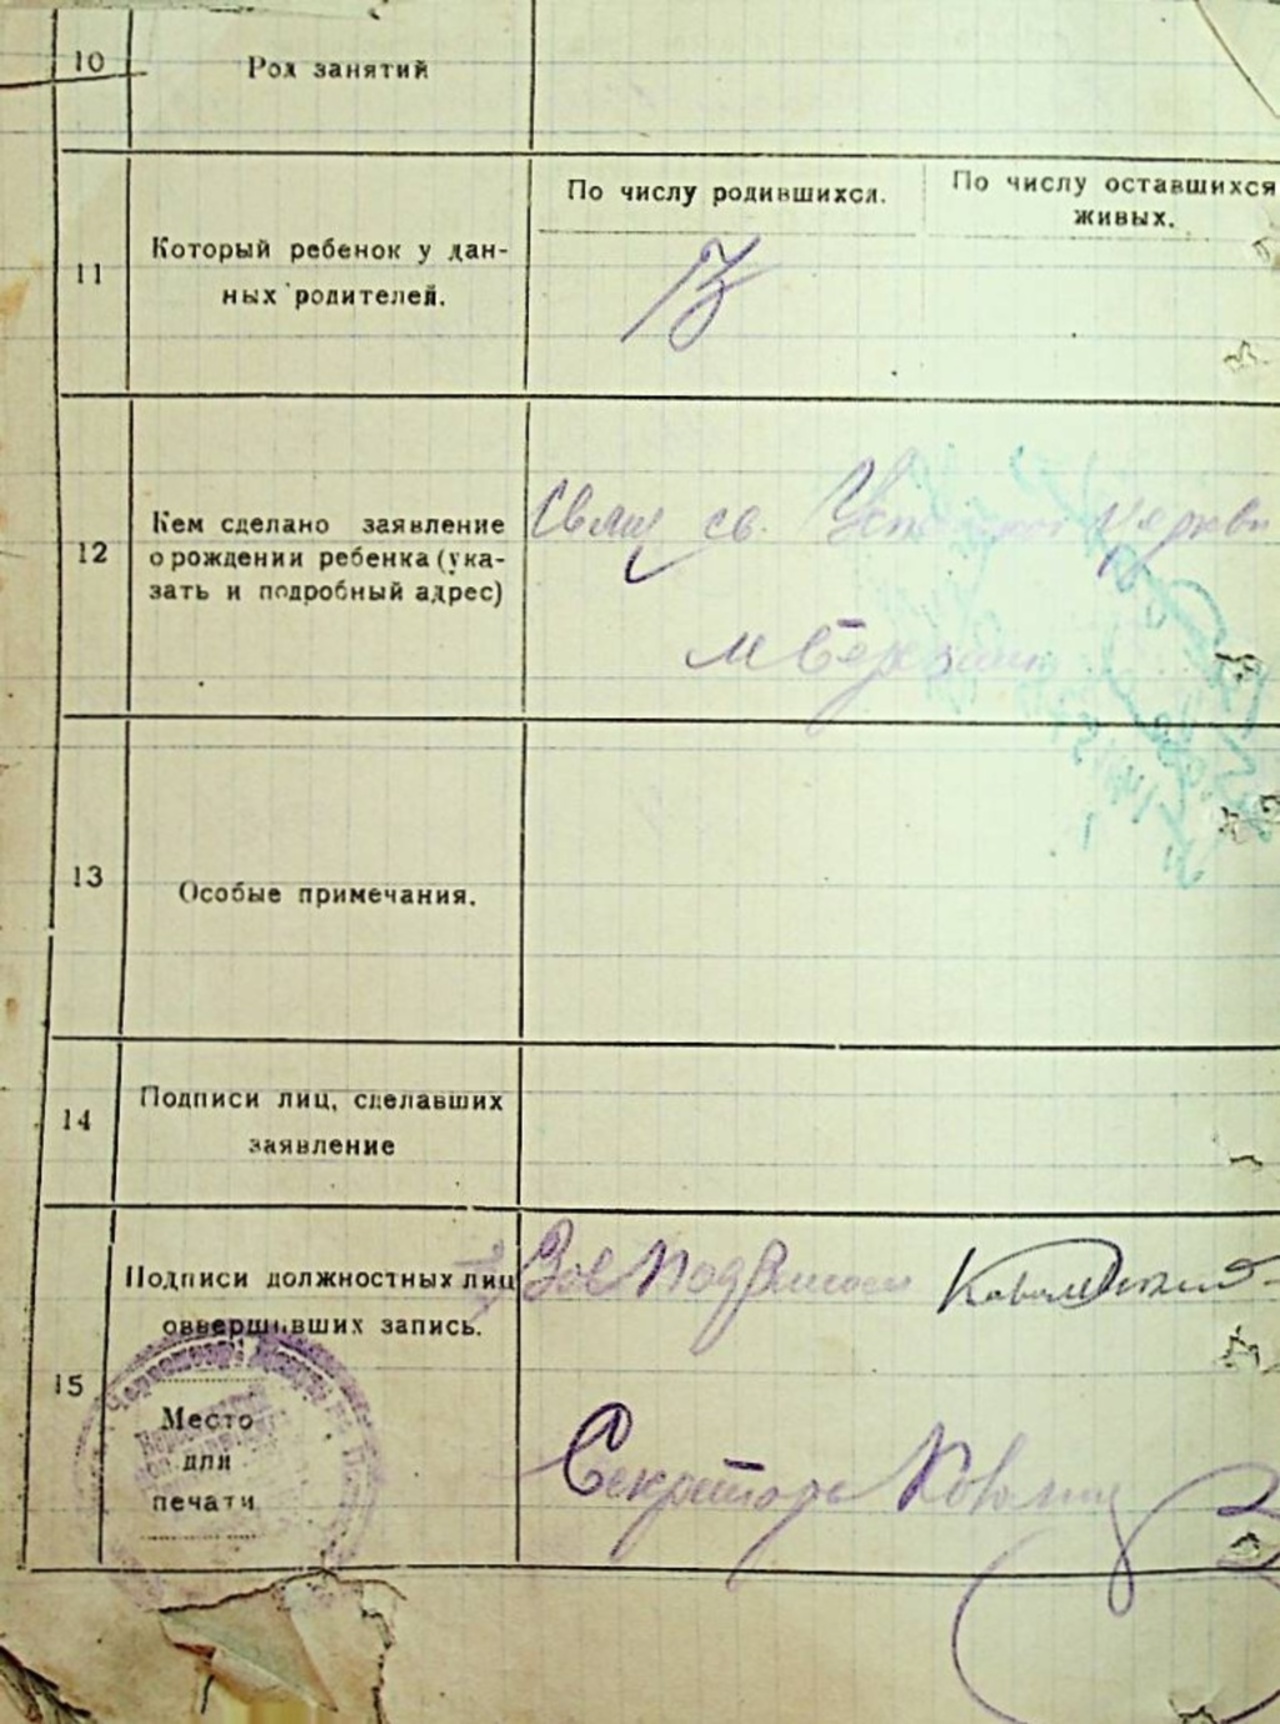 10 Род занятий
11 Который ребенок у дан-
ных родителей.
По числу родившихся.
По числу оставшихся
живых.
12 Кем сделано заявление
о рождении ребенка (ука-
зать и подробный адрес)
Свящ св. Успенской церкви
м Березани
13 Особые примечания.
14 Подписи лиц, сделавших
заявление
15 Подписи должностных лиц
овершивших запись.
Место
для
печати
Секретарь